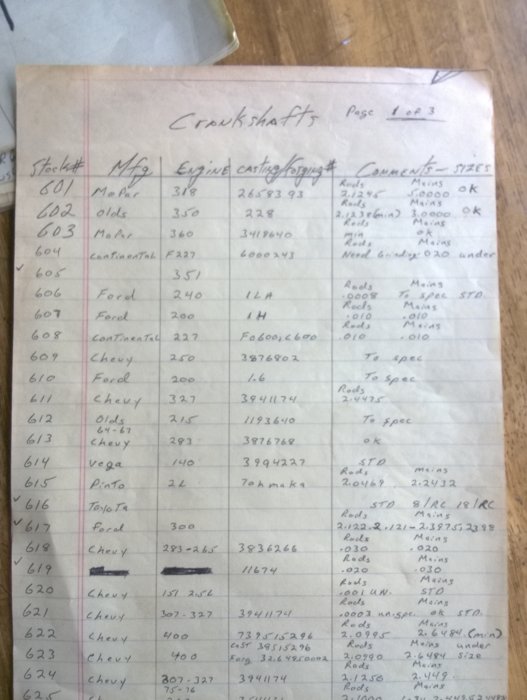 Crankshafts Page 1 of 3
Stock# Mfg. Engine casting/forging# Comments - sizes
Rods Mains
601 MoPar 318 2658393 2.1245 5.0000 OK
Rods Mains
602 Olds 350 228 2.1238(min) 3.0000 OK
Rods Mains
603 MoPar 360 3418640 min ok
Rods Mains
604 Continental F227 6000243 Need Grinding 020 under
605 351
Rods Mains
606 Ford 240 1LA .0008 To spec STD
Rods Mains
607 Ford 200 1H .010 .010
Rods Mains
608 Continental 227 F0600,C600 .010 .010
609 Chevy 250 3876802 To spec
610 Ford 200 1.6 To spec
Rods
611 Chevy 327 3941174 2.4475
612 Olds 215 1193640 To spec
64-67
613 Chevy 283 3876768 ok
614 Vega 140 3994227 STD
Rods Mains
615 Pinto 2L 2.0469 2.2432
616 Toyota STD 8/RC 18/RC
Rods Mains
617 Ford 300 2.122-2.121-2.3975,2398
Rods Mains
618 Chevy 283-265 3836266 .030 .020
Rods Mains
619 11674 .020 .030
Rods Mains
620 Chevy 151 2.5L .001 UN. STD
Rods Mains
621 Chevy 307-327 3941174 .0003 un.spec ok STD.
Rods Mains
622 Chevy 400 739515296 2.0995 2.6484 (min)
cast 39515296 Rods Mains under
623 Chevy 400 Forg 2.0990 2.6484 size
Rods Mains
624 Chevy 307-327 3941174 2.1250 2.449
75-76 Rods Mains
625